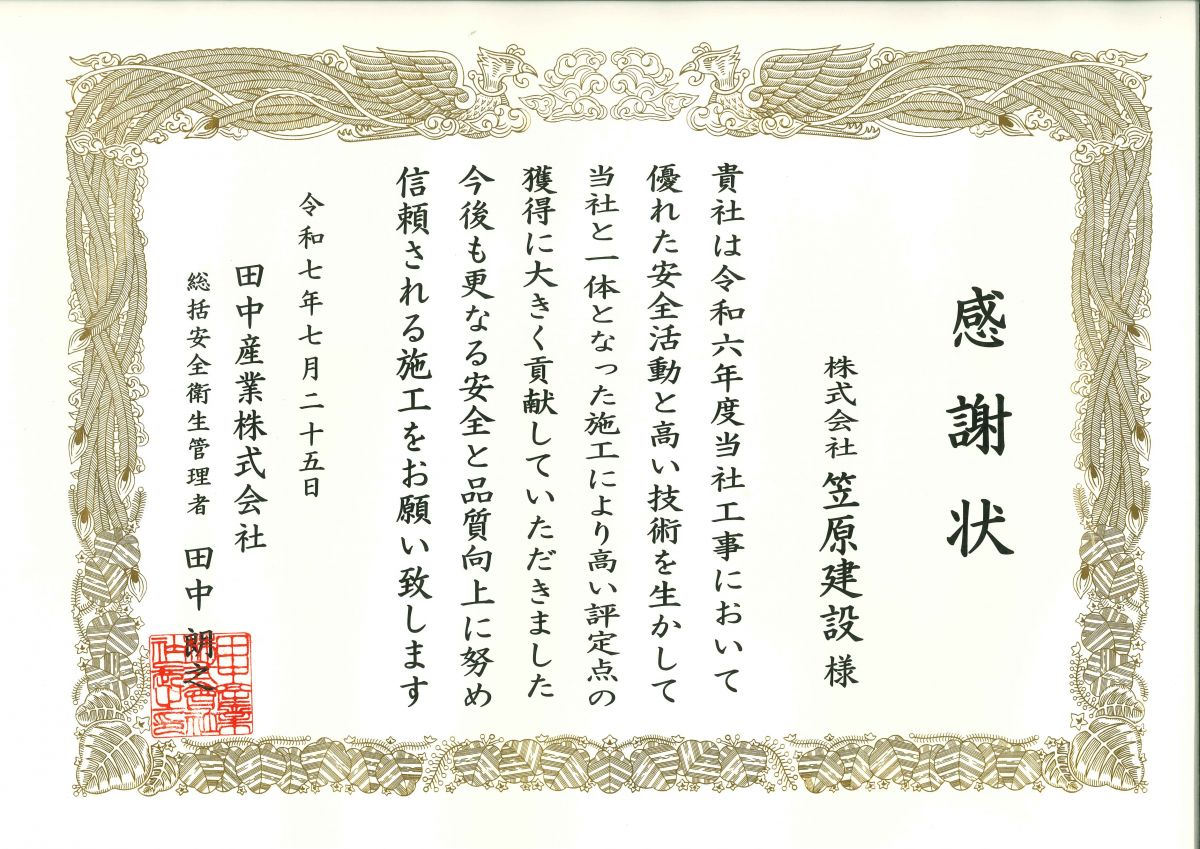 感謝状
株式会社 笠原建設 様
貴社は令和六年度当社工事において
優れた安全活動と高い技術を生かして
当社と一体となった施工により高い評定点の
獲得に大きく貢献していただきました
今後も更なる安全と品質向上に努め
信頼される施工をお願い致します
令和七年七月二十五日
田中産業株式会社
総括安全衛生管理者 田中 朗之